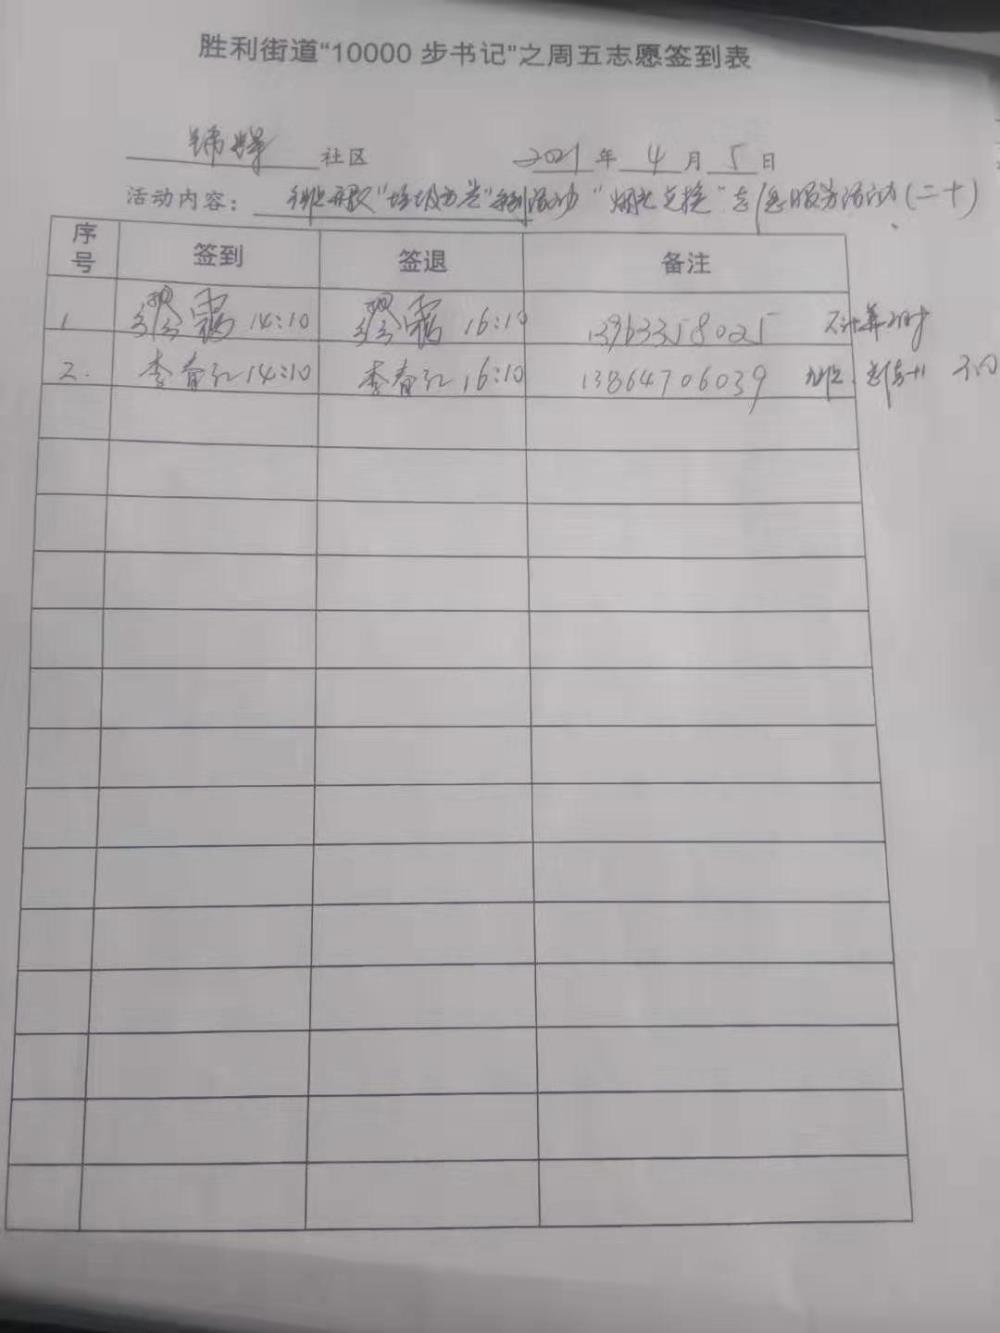 胜利街道“10000 步书记”之周五志愿签到表
锦辉 社区 2021 年 4 月 5 日
活动内容： “垃圾分类” “烟头兑换”志愿服务活动(二十)
序号 签到 签退 备注
1 14:10 16:10 13963358025 不计算
2. 李春红 14:10 李春红 16:10 13864706039